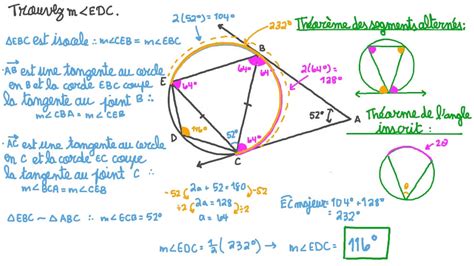 Trouvez m∠EDC.
ΔEBC est isocèle ∴ m∠CEB = m∠ECB
· AB est une tangente au cercle
en B et la corde EBC coupe
la tangente au point B ∴
m∠CBA = m∠CEB
· AC est une tangente au cercle
en C et la corde EC coupe
la tangente au point C ∴
m∠BCA = m∠CEB
ΔEBC ~ ΔABC ∴ m∠ECB = 52°
2(52°) = 104°
B
64°
64°
E
64°
2(64°) =
128°
52°
A
D
116°
52°
64°
C
-52
2a + 52 = 180
-52
÷2
2a = 128
÷2
a = 64
m∠EDC = 1/2 (232°) → m∠EDC = 116°
EC majeur = 104° + 128°
= 232°
Théorème des segments alternés:
Théorème de l'angle
inscrit:
2θ
θ